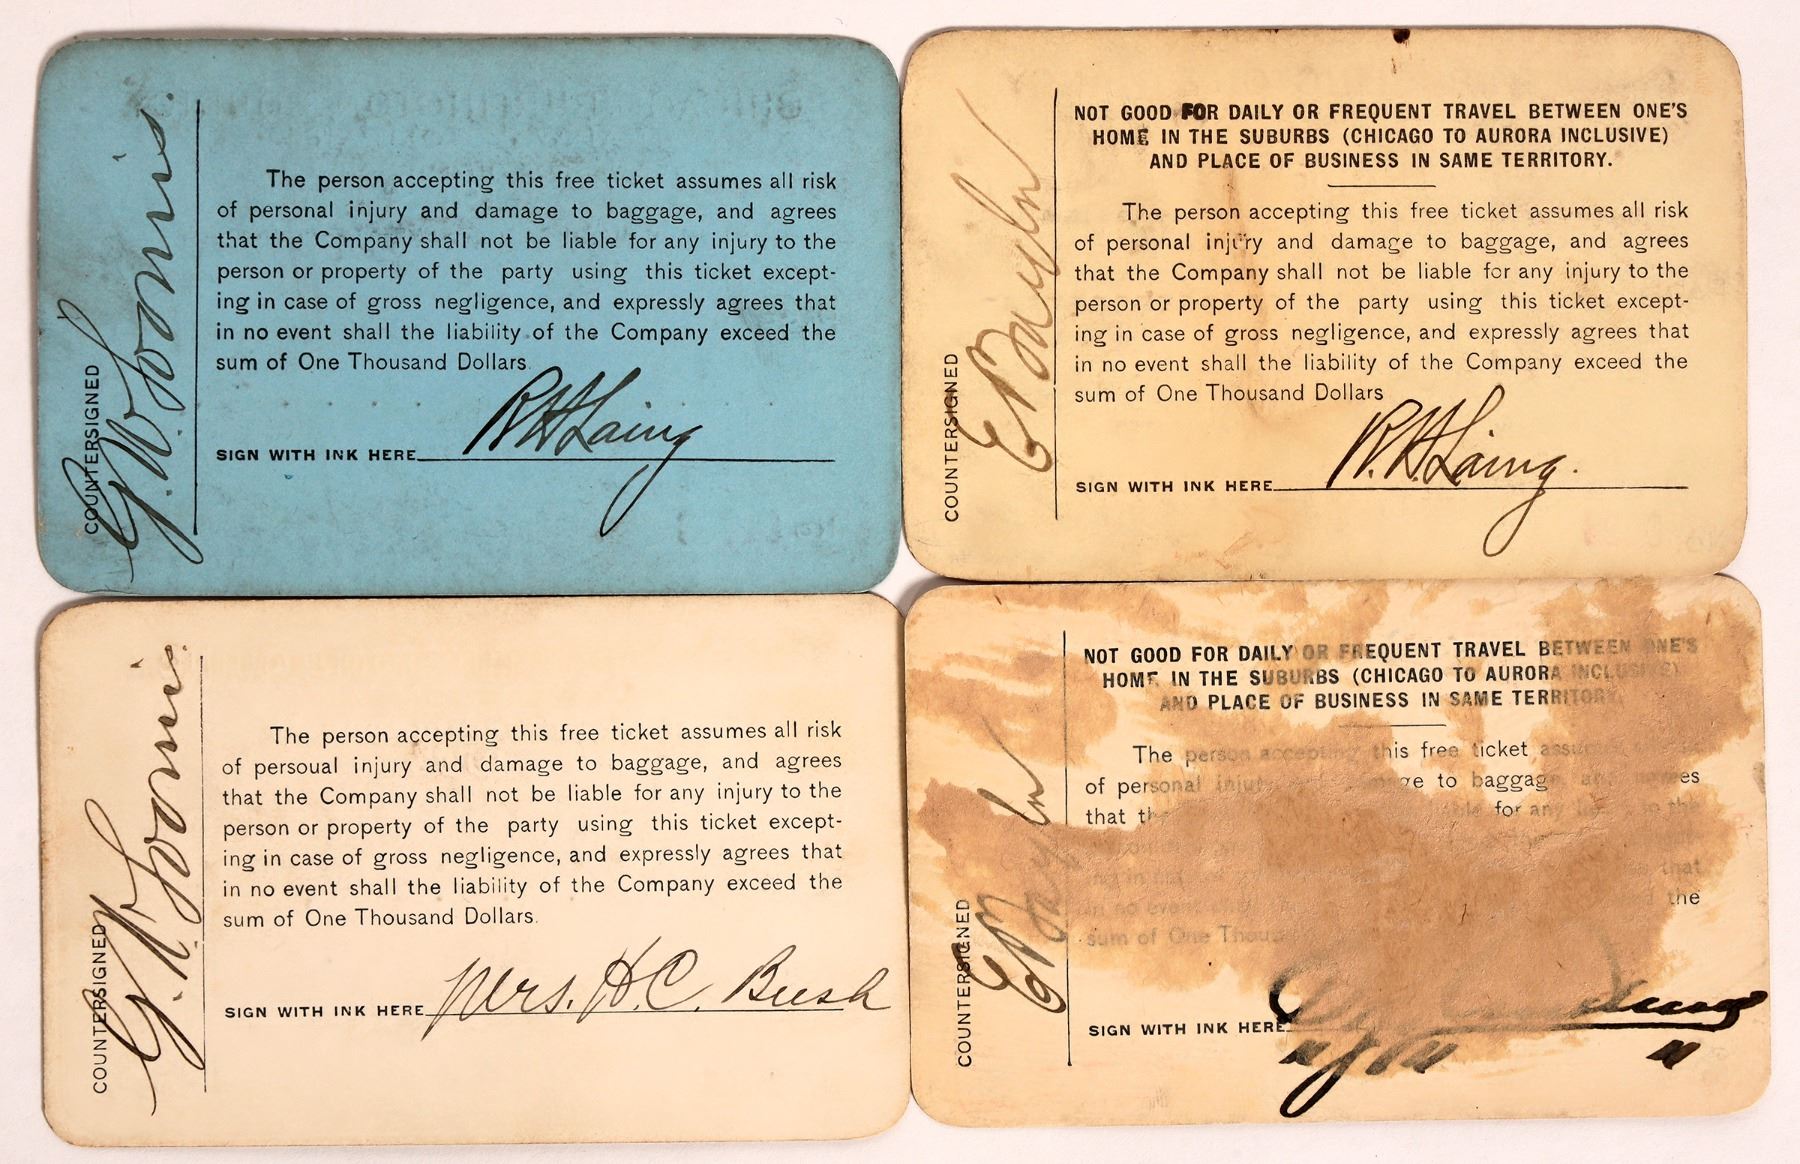 COUNTERSIGNED
G. W. Loomis
The person accepting this free ticket assumes all risk
of personal injury and damage to baggage, and agrees
that the Company shall not be liable for any injury to the
person or property of the party using this ticket except-
ing in case of gross negligence, and expressly agrees that
in no event shall the liability of the Company exceed the
sum of One Thousand Dollars.
SIGN WITH INK HERE R H Laing
COUNTERSIGNED
NOT GOOD FOR DAILY OR FREQUENT TRAVEL BETWEEN ONE'S
HOME IN THE SUBURBS (CHICAGO TO AURORA INCLUSIVE)
AND PLACE OF BUSINESS IN SAME TERRITORY.
The person accepting this free ticket assumes all risk
of personal injury and damage to baggage, and agrees
that the Company shall not be liable for any injury to the
person or property of the party using this ticket except-
ing in case of gross negligence, and expressly agrees that
in no event shall the liability of the Company exceed the
sum of One Thousand Dollars
SIGN WITH INK HERE R. H. Laing.
COUNTERSIGNED
G. W. Loomis
The person accepting this free ticket assumes all risk
of persoual injury and damage to baggage, and agrees
that the Company shall not be liable for any injury to the
person or property of the party using this ticket except-
ing in case of gross negligence, and expressly agrees that
in no event shall the liability of the Company exceed the
sum of One Thousand Dollars.
SIGN WITH INK HERE Mrs. H. C. Bush
COUNTERSIGNED
NOT GOOD FOR DAILY OR FREQUENT TRAVEL BETWEEN ONE'S
HOME IN THE SUBURBS (CHICAGO TO AURORA INCLUSIVE)
AND PLACE OF BUSINESS IN SAME TERRITORY
The person accepting this free ticket
of personal injury to baggage, agrees
that for any to the
that
in no event the
sum of One
SIGN WITH INK HERE